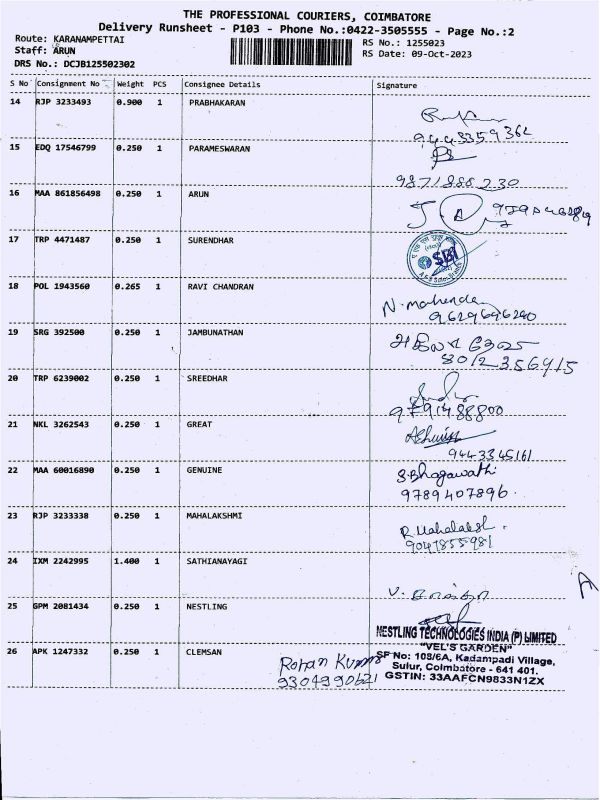 THE PROFESSIONAL COURIERS, COIMBATORE
Delivery Runsheet - P103 - Phone No.:0422-3505555 - Page No.:2
Route: KARANAMPETTAI
RS No.: 1255023
Staff: ARUN
RS Date: 09-Oct-2023
DRS No.: DCJB125502302
S No Consignment No Weight PCS Consignee Details Signature
14 RJP 3233493 0.900 1 PRABHAKARAN
9443359362
15 EDQ 17546799 0.250 1 PARAMESWARAN
9871886230
16 MAA 861856498 0.250 1 ARUN
J.A
17 TRP 4471487 0.250 1 SURENDHAR
SBI
18 POL 1943560 0.265 1 RAVI CHANDRAN
N. mahendan
9629696290
19 SRG 392500 0.250 1 JAMBUNATHAN
8012356915
20 TRP 6239002 0.250 1 SREEDHAR
21 NKL 3262543 0.250 1 GREAT
Ashwin
9443345161
22 MAA 60016890 0.250 1 GENUINE
S.Bhagawathi
9789407896.
23 RJP 3233338 0.250 1 MAHALAKSHMI
R Mahalaksh.
9047855981
24 IXM 2242995 1.400 1 SATHIANAYAGI
A
25 GPM 2081434 0.250 1 NESTLING
NESTLING TECHNOLOGIES INDIA (P) LIMITED
"VEL'S GARDEN"
SF No: 108/6A, Kadampadi Village,
Sulur, Coimbatore - 641 401.
GSTIN: 33AAFCN9833N1ZX
26 APK 1247332 0.250 1 CLEMSAN
Rohan Kumar
9304990621